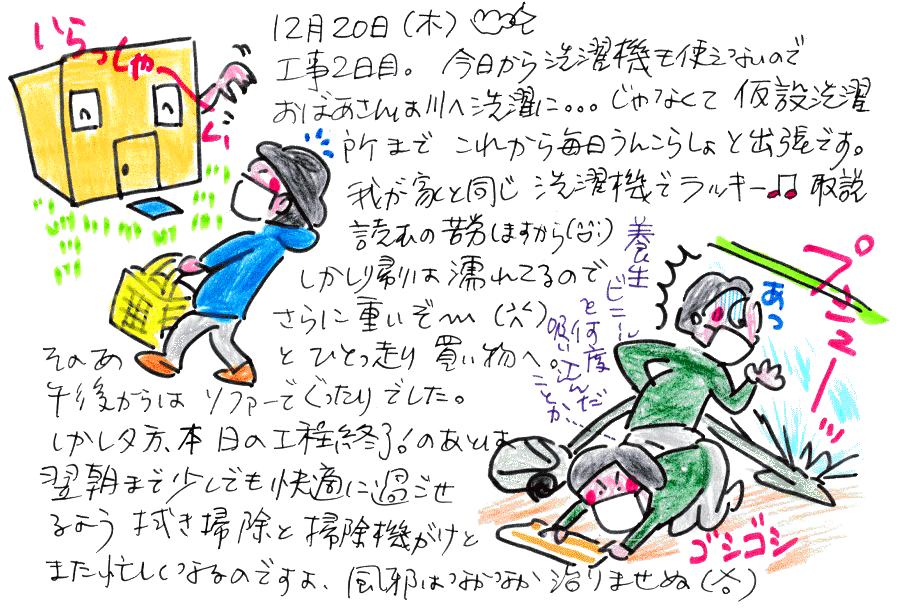 12月20日(木)
工事2日目。今日から洗濯機も使えないので
おばあさんは川へ洗濯に...じゃなくて仮設洗濯
所までこれから毎日うんこらしょと出張です。
我が家と同じ洗濯機でラッキー♫取説
読むの苦労しますから
しかし帰りは濡れてるので
さらに重いぞ〜
そのあとひとっ走り買い物へ。
午後からはソファーでぐったりでした。
しかし夕方、本日の工程終了!のあとは
翌朝まで少しでも快適に過ごせ
るよう拭き掃除と掃除機がけと
また忙しくなるのですよ、風邪はなかなか治りませぬ
いらっしゃ〜い
養生
ビニール
を何度
吸い込んだ
ことか...
あっ
プシューッ
ゴシゴシ